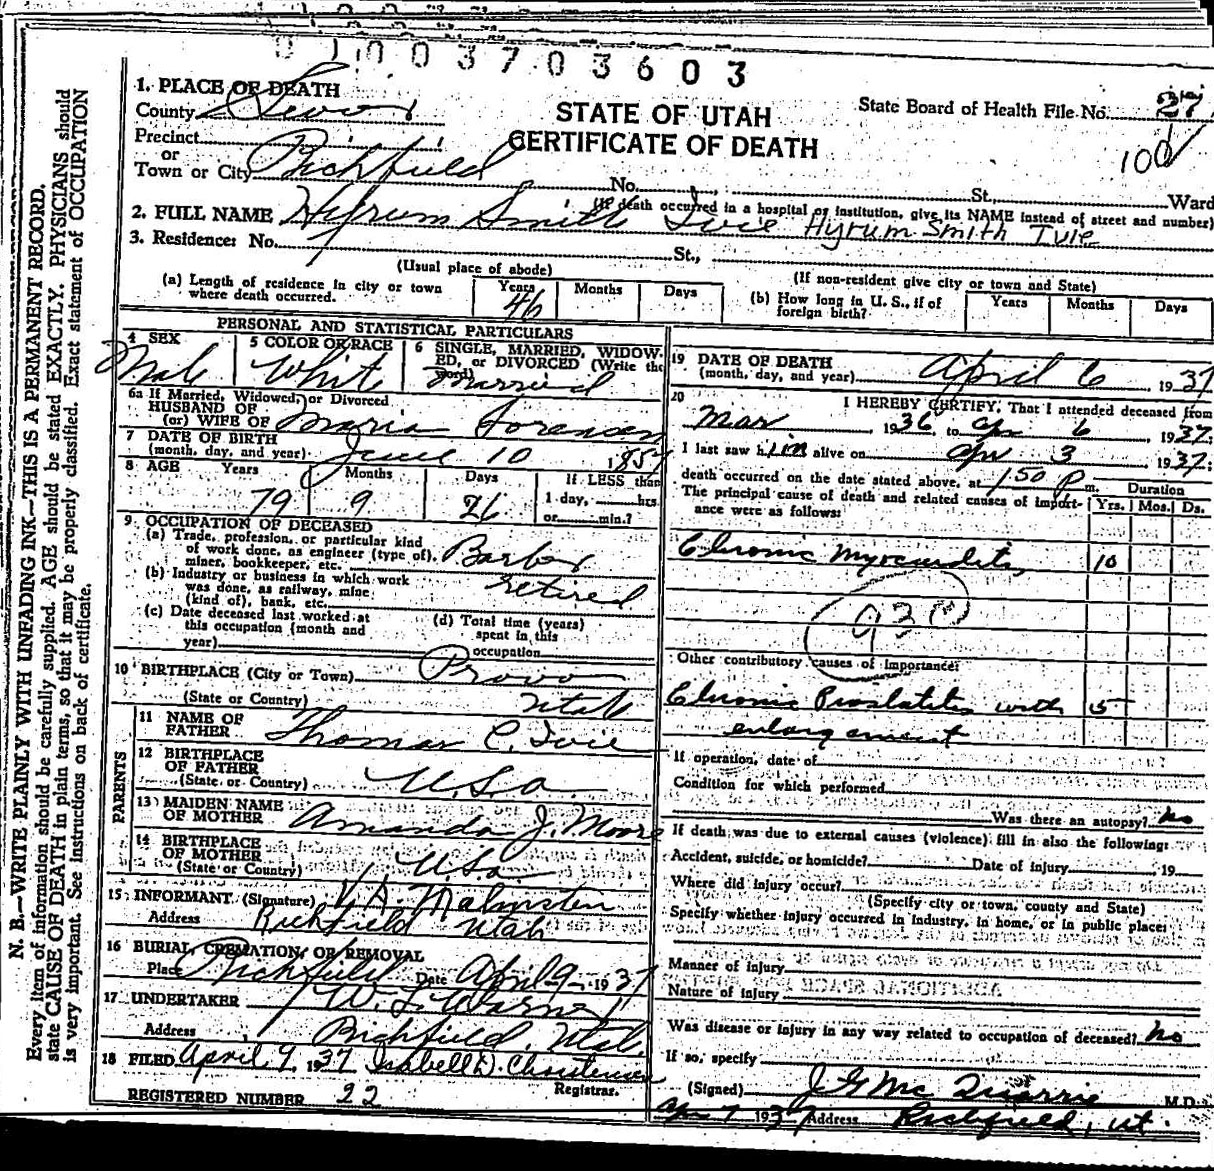 0 1 0 0 3 7 0 3 6 0 3
1. PLACE OF DEATH
County Sevier
STATE OF UTAH
CERTIFICATE OF DEATH
State Board of Health File No. 27
100
Precinct
or
Town or City Richfield No. St., Ward
(If death occurred in a hospital or institution, give its NAME instead of street and number)
2. FULL NAME Hyrum Smith Ivie Hyrum Smith Ivie
3. Residence: No. St.,
(Usual place of abode) (If non-resident give city or town and State)
(a) Length of residence in city or town where death occurred. Years 46 Months Days
(b) How long in U. S., if of foreign birth? Years Months Days
PERSONAL AND STATISTICAL PARTICULARS
4 SEX Male
5 COLOR OR RACE White
6 SINGLE, MARRIED, WIDOWED, or DIVORCED (Write the word) Married
6a If Married, Widowed, or Divorced
HUSBAND OF
(or) WIFE OF Maria Sorensen
7 DATE OF BIRTH
(month, day, and year) June 10 1857
8 AGE Years 79 Months 9 Days 26 If LESS than
1 day, hrs.
or min.?
9 OCCUPATION OF DECEASED
(a) Trade, profession, or particular kind
of work done, as engineer (type of),
miner, bookkeeper, etc. Barber
(b) Industry or business in which work
was done, as railway, mine
(kind of), bank, etc. retired
(c) Date deceased last worked at
this occupation (month and
year)
(d) Total time (years)
spent in this
occupation
10 BIRTHPLACE (City or Town) Provo
(State or Country) Utah
PARENTS
11 NAME OF
FATHER Thomas C. Ivie
12 BIRTHPLACE
OF FATHER
(State or Country) U.S.a.
13 MAIDEN NAME
OF MOTHER Amanda J. Moore
14 BIRTHPLACE
OF MOTHER
(State or Country) U.S.a.
15 INFORMANT (Signature) V. A. Malmsten
Address Richfield Utah
16 BURIAL, CREMATION, OR REMOVAL
Place Richfield Date April 9 - 1937
17 UNDERTAKER
Address Richfield, Utah.
18 FILED April 9, 1937 Isabell D. Christensen
Registrar.
REGISTERED NUMBER 22
19 DATE OF DEATH
(month, day, and year) April 6, 1937
20 I HEREBY CERTIFY, That I attended deceased from
Mar 1936, to apr 6 1937;
I last saw him alive on apr 3 1937;
death occurred on the date stated above, at 1:50 p m.
The principal cause of death and related causes of importance were as follows:
Duration
Yrs. Mos. Ds.
Chronic Myocarditis, 10
Other contributory causes of importance:
Chronic Prostatitis with 5
enlargement
If operation, date of
Condition for which performed
Was there an autopsy? no
If death was due to external causes (violence) fill in also the following:
Accident, suicide, or homicide? Date of injury 19
Where did injury occur?
(Specify city or town, county and State)
Specify whether injury occurred in industry, in home, or in public place:
Manner of injury
Nature of injury
Was disease or injury in any way related to occupation of deceased? no
If so, specify
(Signed) J G McQuarrie M.D.
apr 7 1937 Address Richfield, Ut.
N. B.—WRITE PLAINLY WITH UNFADING INK—THIS IS A PERMANENT RECORD.
Every item of information should be carefully supplied. AGE should be stated EXACTLY. PHYSICIANS should
state CAUSE OF DEATH in plain terms, so that it may be properly classified. Exact statement of OCCUPATION
is very important. See instructions on back of certificate.